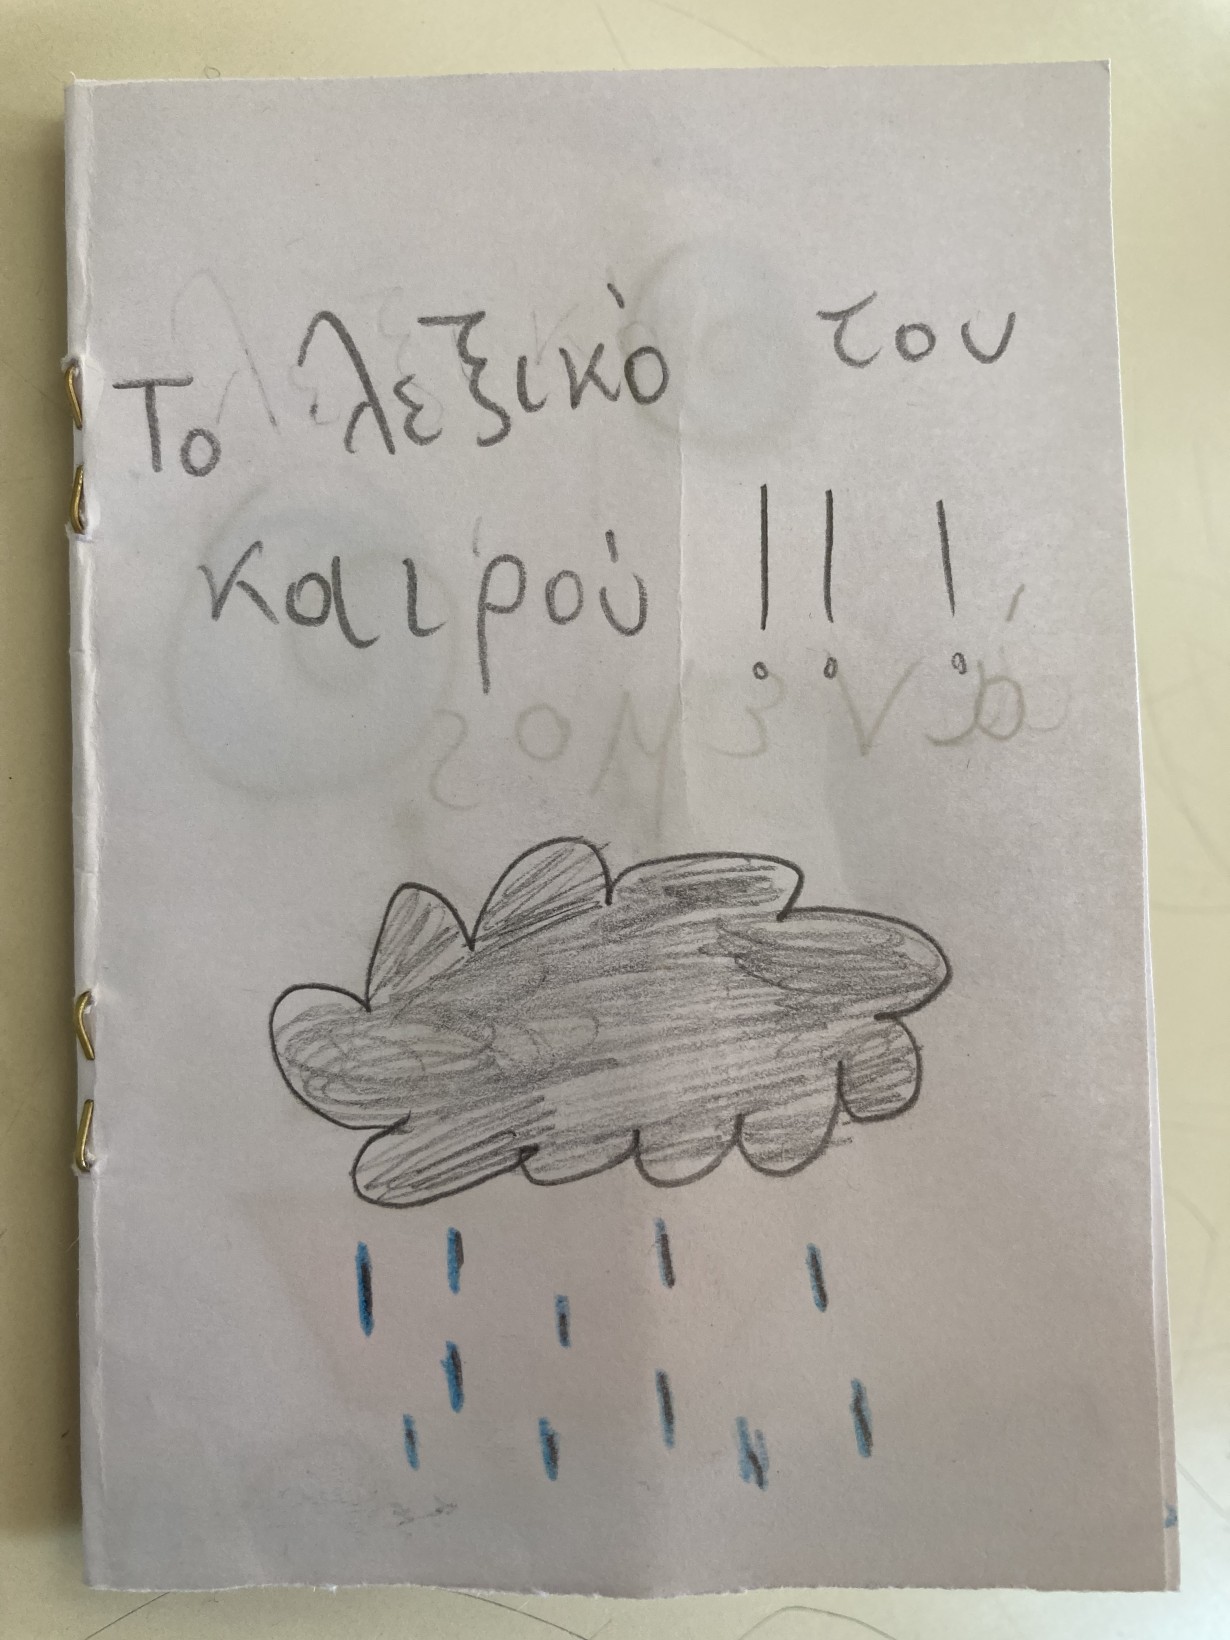 Το λεξικό του
καιρού !!!
άνεμος